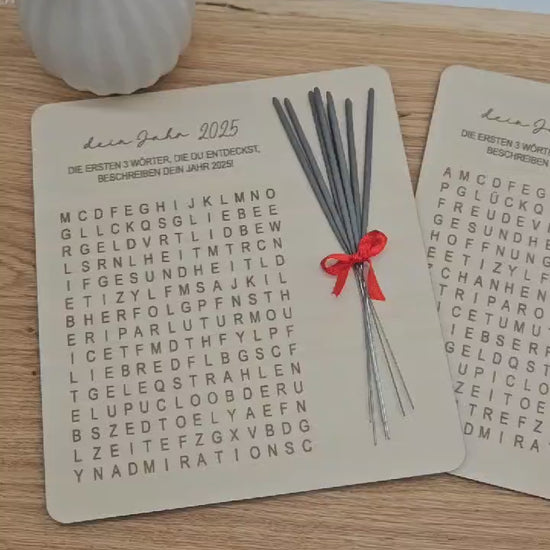 dein Jahr 2025
DIE ERSTEN 3 WÖRTER, DIE DU ENTDECKST,
BESCHREIBEN DEIN JAHR 2025!
M C D F E G H I J K L M N O
G L L C K Q S G L I E B E E
R G E L D V R T L I D B E W
L S R N L H E I T M T R C N
I F G E S U N D H E I T L D
E T I Z Y L F M S A J K I L
B H E R F O L G P F N S T H
E R I P A R L U T U R M O U
I C E T F M D T H F Y L P F
L I E B R E D F L B G S C F
T G E L E Q S T R A H L E N
E L U P U C L O O B D E R U
B S Z E D T O E L Y A E F N
L Z E I T E F Z G X V B D G
Y N A D M I R A T I O N S C
dein Jahr
DIE ERSTEN 3 WÖRTE
BESCHREIBEN
A M C D F E G
P G L Ü C K Q
F R E U D E V
G E S U N D H E
H O F F N U N G
E E T I Z Y L F
Z C H A N H E N
E T R I P A R O
I C E T U M U
L I E B S E R F
G E L D Q S T
E U P I C L O
Z E I T O E
O T R E F Z
D M I R A